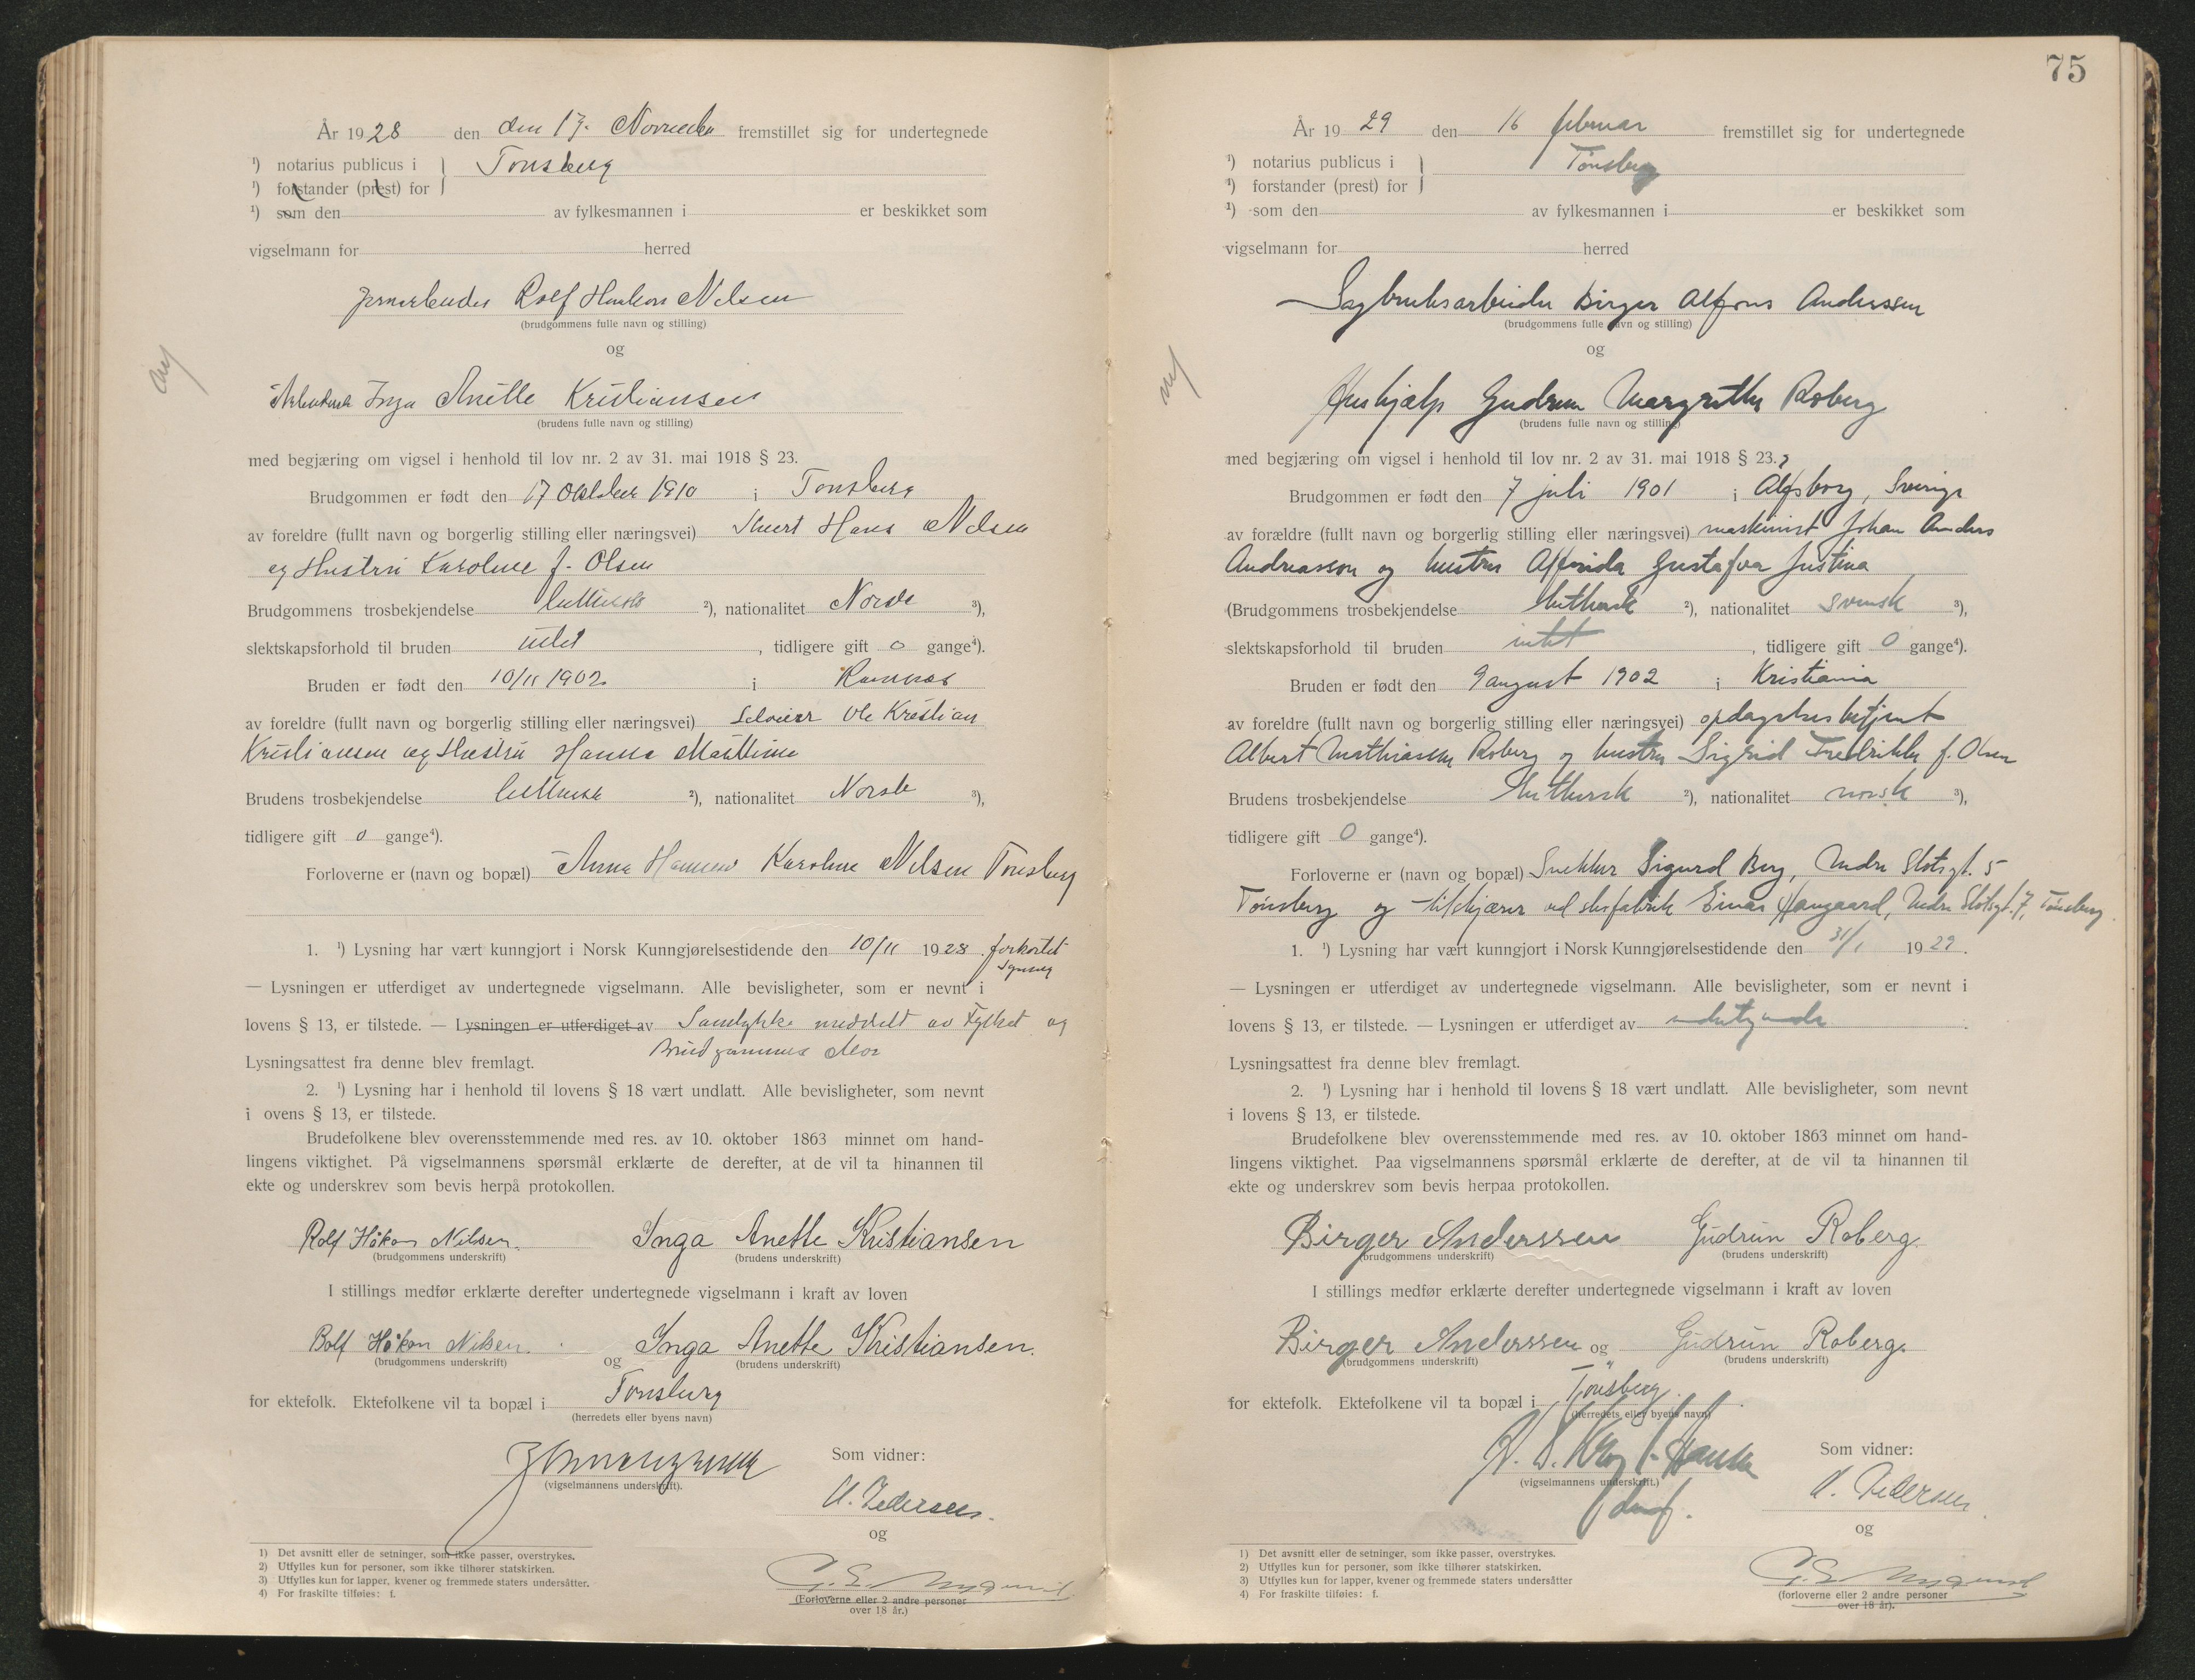 År 1928 den den 17. November fremstillet sig for undertegnede
¹) notarius publicus i } Tonsberg
¹) forstander (prest) for
¹) som den av fylkesmannen i er beskikket som
vigselmann for herred
Jernarbeider Rolf Haakon Nilsen
(brudgommens fulle navn og stilling)
og
Inga Anette Kristiansen
(brudens fulle navn og stilling)
med begjæring om vigsel i henhold til lov nr. 2 av 31. mai 1918 § 23.
Brudgommen er født den 17 Oktober 1910 i Tonsberg
av foreldre (fullt navn og borgerlig stilling eller næringsvei) Hans Nilsen
og Hustru Karoline f. Olsen
Brudgommens trosbekjendelse luthersk ²), nationalitet Norsk ³),
slektskapsforhold til bruden intet , tidligere gift 0 gange⁴).
Bruden er født den 10/11 1902 i Ramnes
av foreldre (fullt navn og borgerlig stilling eller næringsvei) Selveier Ole Kristian
Kristiansen og Hustru Hanna Mathilde
Brudens trosbekjendelse luthersk ²), nationalitet Norsk ³),
tidligere gift 0 gange⁴).
Forloverne er (navn og bopæl) Anna Karoline Nilsen Tonsberg
1. ¹) Lysning har vært kunngjort i Norsk Kunngjørelsestidende den 10/11 1928. forkortet
lysning
— Lysningen er utferdiget av undertegnede vigselmann. Alle bevisligheter, som er nevnt i
lovens § 13, er tilstede. — Lysningen er utferdiget av Samtykke meddelt av Fylket og
Brudgommens Mor
Lysningsattest fra denne blev fremlagt.
2. ¹) Lysning har i henhold til lovens § 18 vært undlatt. Alle bevisligheter, som nevnt
i ovens § 13, er tilstede.
Brudefolkene blev overensstemmende med res. av 10. oktober 1863 minnet om hand-
lingens viktighet. På vigselmannens spørsmål erklærte de derefter, at de vil ta hinannen til
ekte og underskrev som bevis herpå protokollen.
Rolf Håkon Nilsen. Inga Anette Kristiansen
(brudgommens underskrift) (brudens underskrift)
I stillings medfør erklærte derefter undertegnede vigselmann i kraft av loven
Rolf Håkon Nilsen. og Inga Anette Kristiansen.
(brudgommens underskrift) (brudens underskrift)
for ektefolk. Ektefolkene vil ta bopæl i Tonsberg
(herredets eller byens navn)
Som vidner:
(vigselmannens underskrift).
A. Pedersen.
og
(Forloverne eller 2 andre personer
over 18 år.)
1) Det avsnitt eller de setninger, som ikke passer, overstrykes.
2) Utfylles kun for personer, som ikke tilhører statskirken.
3) Utfylles kun for lapper, kvener og fremmede staters undersåtter.
4) For fraskilte tilføies: f.
75
År 1929 den 16 februar fremstillet sig for undertegnede
¹) notarius publicus i } Tönsberg
¹) forstander (prest) for
¹) som den av fylkesmannen i er beskikket som
vigselmann for herred
Sagbruksarbeider Birger Alfons Anderssen
(brudgommens fulle navn og stilling)
og
Hushjælp Gudrun Margrethe Roberg
(brudens fulle navn og stilling)
med begjæring om vigsel i henhold til lov nr. 2 av 31. mai 1918 § 23.
Brudgommen er født den 7 juli 1901 i Alfsborg, Sverige
av forældre (fullt navn og borgerlig stilling eller næringsvei) maskinist Johan Anders
Andreasson og hustru Gustafva Justina
(Brudgommens trosbekjendelse luthersk ²), nationalitet svensk ³),
slektskapsforhold til bruden intet , tidligere gift 0 gange⁴).
Bruden er født den 9 august 1902 i Kristiania
av foreldre (fullt navn og borgerlig stilling eller næringsvei) opdagelsesbetjent
Albert Mathiassen Roberg og hustru Sigrid Fredrikke f. Olsen
Brudens trosbekjendelse luthersk ²), nationalitet norsk ³),
tidligere gift 0 gange⁴).
Forloverne er (navn og bopæl) Snekker Sigurd Berg, Nedre Slotsgt. 5
Tönsberg og tilskjærer ved skofabrik Einar Haugaard, Nedre Slotsgt. 7, Tönsberg.
1. ¹) Lysning har vært kunngjort i Norsk Kunngjørelsestidende den 31/1 1929.
— Lysningen er utferdiget av undertegnede vigselmann. Alle bevisligheter, som er nevnt i
lovens § 13, er tilstede. — Lysningen er utferdiget av undertegnede
Lysningsattest fra denne blev fremlagt.
2. ¹) Lysning har i henhold til lovens § 18 vært undlatt. Alle bevisligheter, som nevnt
i lovens § 13, er tilstede.
Brudefolkene blev overensstemmende med res. av 10. oktober 1863 minnet om hand-
lingens viktighet. Paa vigselmannens spørsmål erklærte de derefter, at de vil ta hinannen til
ekte og underskrev som bevis herpaa protokollen.
Birger Anderssen Gudrun Roberg.
(brudgommens underskrift) (brudens underskrift)
I stillings medfør erklærte derefter undertegnede vigselmann i kraft av loven
Birger Anderssen og Gudrun Roberg.
(brudgommens underskrift) (brudens underskrift)
for ektefolk. Ektefolkene vil ta bopæl i Tönsberg.
(herredets eller byens navn)
Som vidner:
(vigselmannens underskrift.)
A. Pedersen
og
(forloverne eller 2 andre personer
over 18 år).
1) Det avsnitt eller de setninger, som ikke passer, overstrykes.
2) Utfylles kun for personer, som ikke tilhører statskirken.
3) Utfylles kun for lapper, kvener og fremmede staters undersåtter
4) For fraskilte tilføies: f.